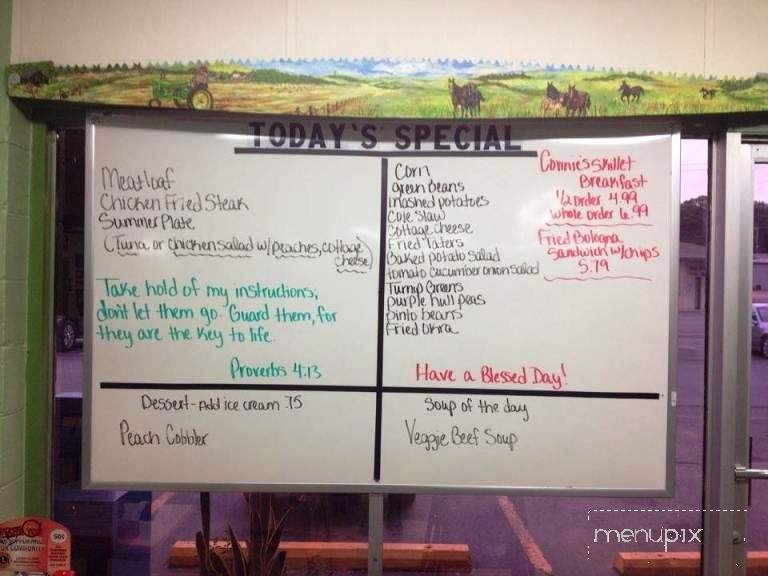 TODAY'S SPECIAL
Meatloaf
Chicken Fried Steak
Summer Plate
(Tuna or chicken salad w/peaches, cottage
cheese)
Take hold of my instructions;
don't let them go. Guard them, for
they are the key to life.
Proverbs 4:13
Corn
green beans
mashed potatoes
Cole Slaw
Cottage cheese
Fried 'taters
Baked potato salad
tomato cucumber onion salad
Turnip Greens
purple hull peas
pinto beans
Fried Okra
Connie's Skillet
Breakfast
1/2 order 4.99
whole order 6.99
Fried Bologna
Sandwich w/chips
5.79
Have a Blessed Day!
Dessert - Add ice cream .75
Peach Cobbler
Soup of the day
Veggie Beef Soup
50¢
menupix